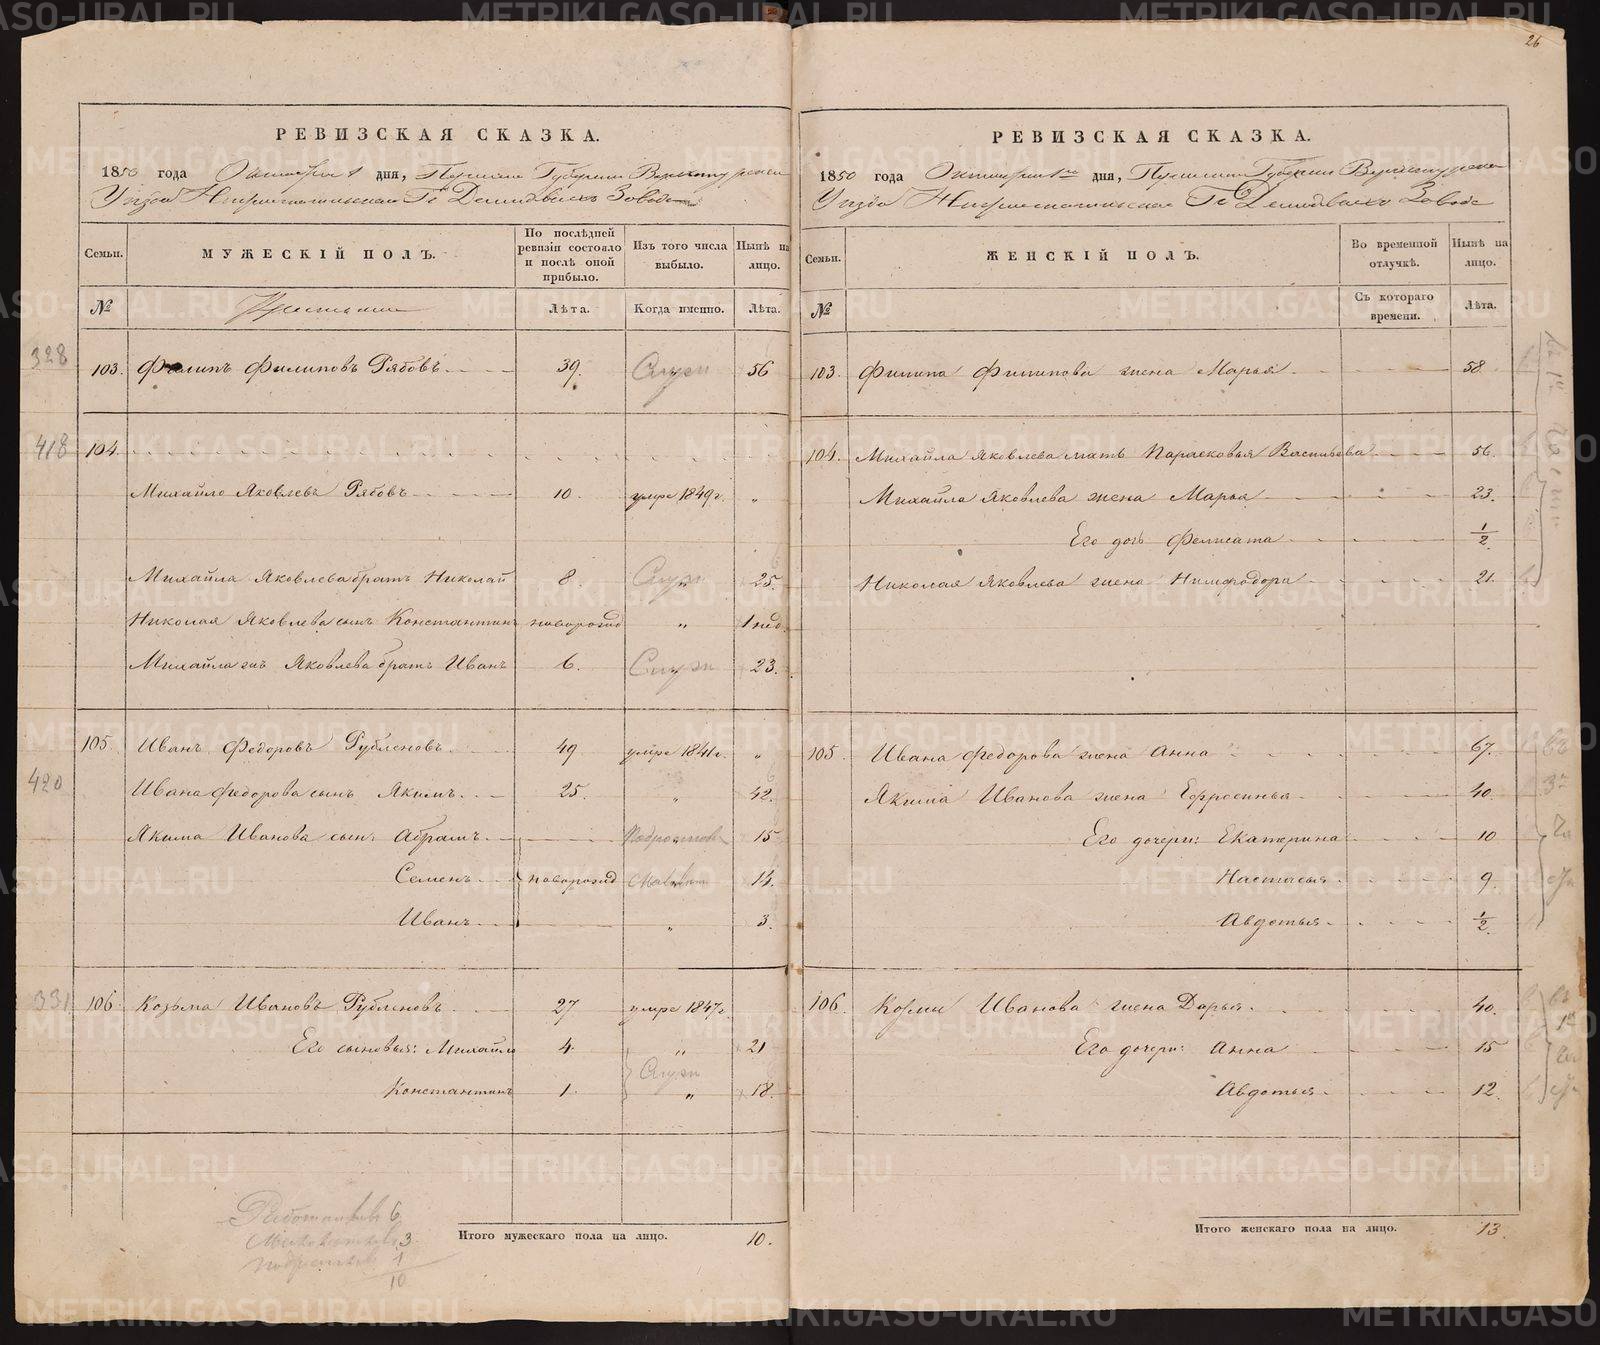 26
РЕВИЗСКАЯ СКАЗКА.
1850 года Октября 1 дня, Пермской Губернии Верхотурскаго
Уѣзда Нижнетагильскаго Гг Демидовыхъ Завода
Семьи.
МУЖЕСКІЙ ПОЛЪ.
По послѣдней ревизіи состояло и послѣ оной прибыло.
Изъ того числа выбыло.
Нынѣ на лицо.
№
Крестьяне
Лѣта.
Когда именно.
Лѣта.
328
103. Филипъ Филиповъ Рябовъ 39. Служ 56
418
104.
Михайло Яковлевъ Рябовъ 10. умре 1849г. „
Михайла Яковлева братъ Николай 8. Служ 25.
Николая Яковлева сынъ Константинъ новорожд „ 1 нед.
Михайла жъ Яковлева братъ Иванъ 6. Служ 23.
105. Иванъ Федоровъ Рубленовъ 49 умре 1841г. „
420
Ивана Федорова сынъ Якимъ 25. „ 42.
Якима Иванова сын: Абрамъ Подростокъ 15
Семенъ новорожд 14.
Иванъ „ 3.
331
106. Козьма Ивановъ Рубленовъ 27 умре 1847г.
Его сыновья: Михайло 4. „ 21
Служ
Константинъ 1. „ 18.
Итого мужескаго пола на лицо. 10.
Работниковъ 6
3
1
10
РЕВИЗСКАЯ СКАЗКА.
1850 года Октября 1го дня, Пермской Губернии Верхотурскаго
Уѣзда Нижнетагильскаго Гг Демидовыхъ Завода
Семьи.
ЖЕНСКІЙ ПОЛЪ.
Во временной отлучкѣ.
Нынѣ на лицо.
№
Съ котораго времени.
Лѣта.
103. Филипа Филипова жена Марья 58.
104. Михайла Яковлева мать Парасковья Васильева 56.
Михайла Яковлева жена Марья 23.
Его дочь Фелисата 1/2.
Николая Яковлева жена Нимфодора 21.
105. Ивана Федорова жена Анна 67.
Якима Иванова жена Ефросинья 40.
Его дочери: Екатерина 10
Настасья 9.
Авдотья 1/2.
106. Козмы Иванова жена Дарья 40.
Его дочери: Анна 15
Авдотья 12.
Итого женскаго пола на лицо. 13.
METRIKI.GASO-URAL.RU